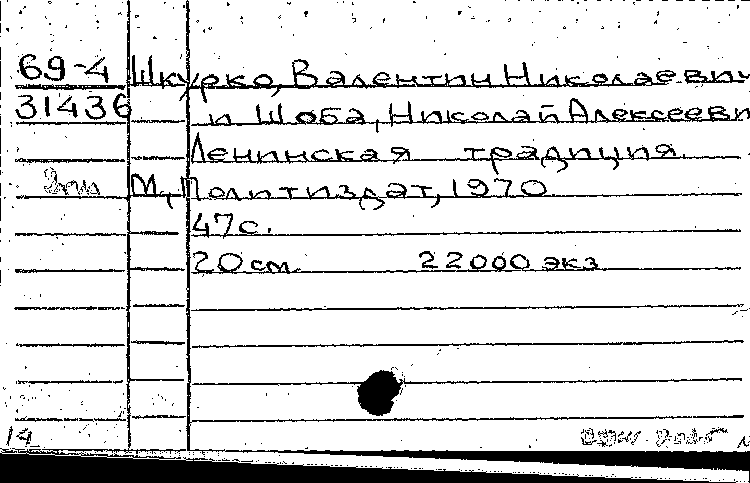 69-4 Шкурко, Валентин Николаевич
31436 и Шоба, Николай Алексееви
Ленинская традиция.
М., Политиздат, 1970
47 с.
20 см. 22000 экз
14